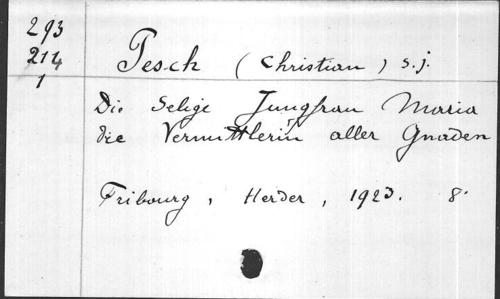 293
214
1
Pesch (Christian) s.j.
Die Selige Jungfrau Maria
die Vermittlerin aller Gnaden
Fribourg, Herder, 1923. 8°